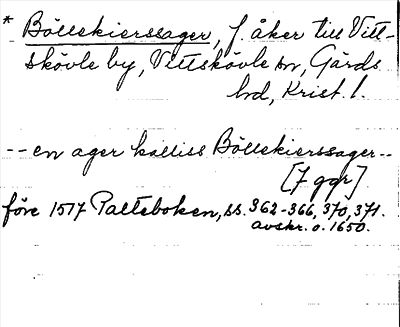 * Böllekierssager, f. åker till Vitt-
skövle by, Vittskövle sn, Gärds
hd, Krist. l.
-- en ager kalliss Böllekierssager --
[7 ggr]
före 1517 Palteboken, ss. 362-366, 370, 371.
avskr. o. 1650.